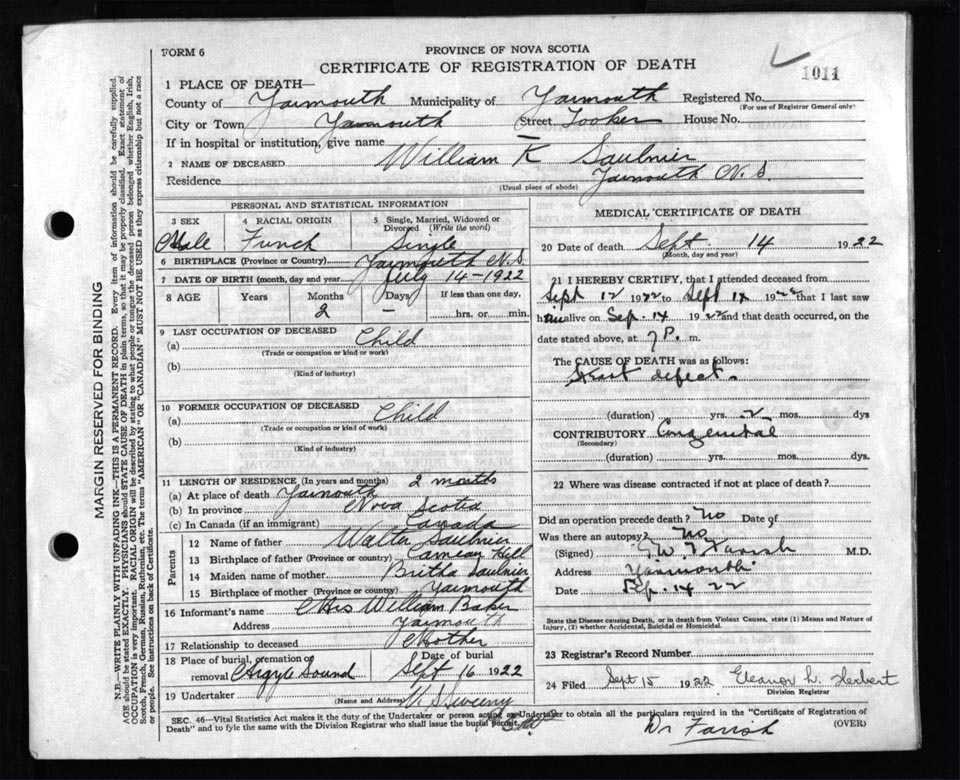 FORM 6
PROVINCE OF NOVA SCOTIA
CERTIFICATE OF REGISTRATION OF DEATH
1011
1 PLACE OF DEATH—
County of Yarmouth Municipality of Yarmouth Registered No.
(For use of Registrar General only)
City or Town Yarmouth Street Tooker House No.
If in hospital or institution, give name
2 NAME OF DECEASED William K Saulnier
Residence Yarmouth N.S.
(Usual place of abode)
PERSONAL AND STATISTICAL INFORMATION
3 SEX Male
4 RACIAL ORIGIN French
5 Single, Married, Widowed or Divorced (Write the word) Single
6 BIRTHPLACE (Province or Country) Yarmouth N.S.
7 DATE OF BIRTH (month, day and year) July 14-1922
8 AGE Years Months 2 Days — If less than one day, hrs. or min.
9 LAST OCCUPATION OF DECEASED
(a) Child
(Trade or occupation or kind or work)
(b)
(Kind of industry)
10 FORMER OCCUPATION OF DECEASED
(a) Child
(Trade or occupation or kind of work)
(b)
(Kind of industry)
11 LENGTH OF RESIDENCE (In years and months) 2 months
(a) At place of death Yarmouth
(b) In province Nova Scotia
(c) In Canada (if an immigrant) Canada
Parents
12 Name of father Walter Saulnier
13 Birthplace of father (Province or country) Hill
14 Maiden name of mother Saulnier
15 Birthplace of mother (Province or country) Yarmouth
16 Informant's name Mrs William Baker
Address Yarmouth
17 Relationship to deceased Mother
18 Place of burial, cremation or removal Argyle Sound Date of burial Sept 16 1922
19 Undertaker V. S. Sweeny
(Name and Address)
MEDICAL CERTIFICATE OF DEATH
20 Date of death Sept 14 1922
(Month, day and year)
21 I HEREBY CERTIFY, that I attended deceased from
Sept 12 1922 to Sept 14 1922 that I last saw
him alive on Sep. 14 1922 and that death occurred, on
date stated above, at 7 P. m.
The CAUSE OF DEATH was as follows:
Heart defect.
(duration) yrs. 2 mos. dys
CONTRIBUTORY Congenital
(Secondary)
(duration) yrs. mos. dys.
22 Where was disease contracted if not at place of death?
Did an operation precede death? No Date of
Was there an autopsy? No
(Signed) Farish M.D.
Address Yarmouth
Date Sep. 14 22
State the Disease causing Death, or in death from Violent Causes, state (1) Means and Nature of
Injury, (2) whether Accidental, Suicidal or Homicidal.
23 Registrar's Record Number
24 Filed Sept 15 1922 Eleanor L. Herbert
Division Registrar
SEC. 46—Vital Statistics Act makes it the duty of the Undertaker or person acting as Undertaker to obtain all the particulars required in the "Certificate of Registration of
Death" and to fyle the same with the Division Registrar who shall issue the burial permit.
(OVER)
Dr Farish
MARGIN RESERVED FOR BINDING
N.B.—WRITE PLAINLY WITH UNFADING INK—THIS IS A PERMANENT RECORD. Every item of information should be carefully supplied.
AGE should be stated EXACTLY. PHYSICIANS should STATE CAUSE OF DEATH in plain terms, so that it may be properly classified. Exact statement of
OCCUPATION is very important. RACIAL ORIGIN will be described by stating to what people or tongue the deceased person belonged whether English, Irish,
Scotch, French, German, Russian, Ruthenian, etc. The terms "AMERICAN" or "CANADIAN" MUST NOT BE USED as they express citizenship but not a race
or people. See instructions on back of Certificate.